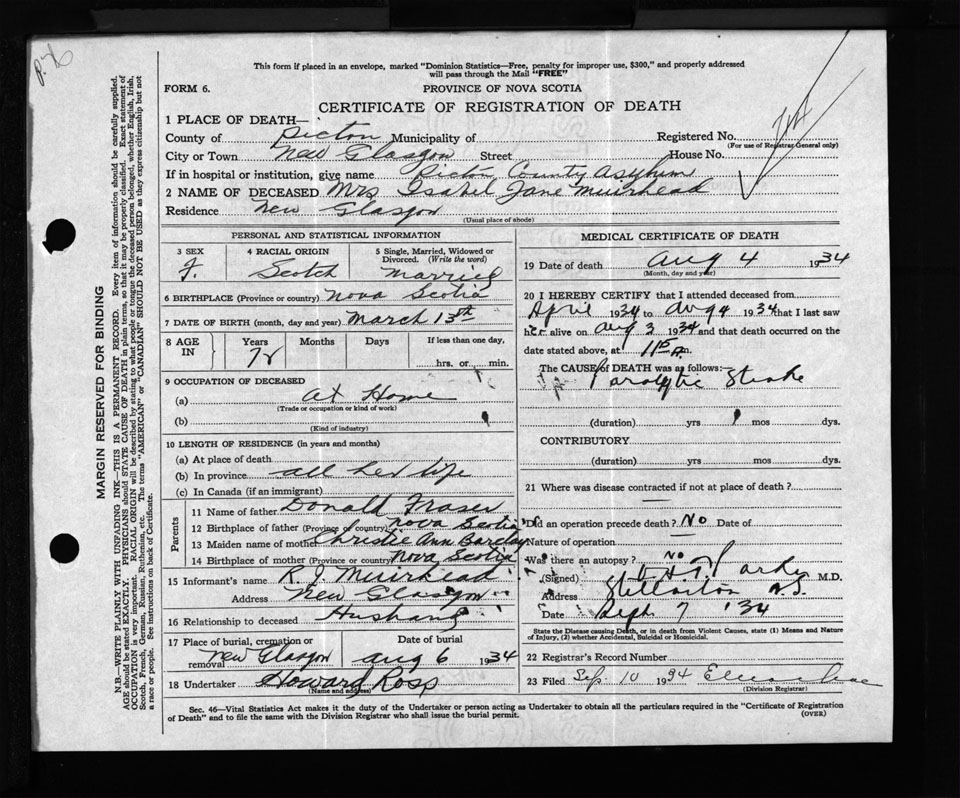 This form if placed in an envelope, marked "Dominion Statistics—Free, penalty for improper use, $300," and properly addressed
will pass through the Mail "FREE"
FORM 6.
PROVINCE OF NOVA SCOTIA
CERTIFICATE OF REGISTRATION OF DEATH
1 PLACE OF DEATH—
County of Pictou Municipality of Registered No.
(For use of Registrar General only)
City or Town New Glasgow Street House No.
If in hospital or institution, give name Pictou County Asylum
2 NAME OF DECEASED Mrs Isabel Jane Muirhead
Residence New Glasgow
(Usual place of abode)
PERSONAL AND STATISTICAL INFORMATION
3 SEX 4 RACIAL ORIGIN 5 Single, Married, Widowed or
Divorced. (Write the word)
F. Scotch Married
6 BIRTHPLACE (Province or country) Nova Scotia
7 DATE OF BIRTH (month, day and year) March 13th
8 AGE
IN
Years Months Days If less than one day,
72
hrs. or min.
9 OCCUPATION OF DECEASED
(a) At Home
(Trade or occupation or kind of work)
(b)
(Kind of industry)
10 LENGTH OF RESIDENCE (in years and months)
(a) At place of death
(b) In province all her life
(c) In Canada (if an immigrant)
Parents
11 Name of father Donald Fraser
12 Birthplace of father (Province or country) Nova Scotia
13 Maiden name of mother Christie Ann Barclay
14 Birthplace of mother (Province or country) Nova Scotia
15 Informant's name R. J. Muirhead
Address New Glasgow
16 Relationship to deceased Husband
17 Place of burial, cremation or
removal New Glasgow
Date of burial
Aug 6 1934
18 Undertaker Howard Ross
(Name and address)
MEDICAL CERTIFICATE OF DEATH
19 Date of death Aug 4 1934
(Month, day and year)
20 I HEREBY CERTIFY that I attended deceased from
April 1934 to Aug 4 1934 that I last saw
her alive on Aug 3 1934 and that death occurred on the
date stated above, at 11 m.
The CAUSE of DEATH was as follows:—
Paralytic Stroke
(duration) yrs mos dys.
CONTRIBUTORY
(duration) yrs mos dys.
21 Where was disease contracted if not at place of death?
Did an operation precede death? No Date of
Nature of operation
Was there an autopsy? No
(Signed) M.D.
Address Stellarton N.S.
Date Sept 7 '34
State the Disease causing Death, or in death from Violent Causes, state (1) Means and Nature
of Injury, (2) whether Accidental, Suicidal or Homicidal.
22 Registrar's Record Number
23 Filed Sep 10 1934
(Division Registrar)
Sec. 46—Vital Statistics Act makes it the duty of the Undertaker or person acting as Undertaker to obtain all the particulars required in the "Certificate of Registration
of Death" and to file the same with the Division Registrar who shall issue the burial permit.
(OVER)
MARGIN RESERVED FOR BINDING
N.B.—WRITE PLAINLY WITH UNFADING INK—THIS IS A PERMANENT RECORD. Every item of information should be carefully supplied.
AGE should be stated EXACTLY. PHYSICIANS should STATE CAUSE OF DEATH in plain terms, so that it may be properly classified. Exact statement of
OCCUPATION is very important. RACIAL ORIGIN will be described by stating to what people or tongue the deceased person belonged, whether English, Irish,
Scotch, French, German, Russian, Ruthenian, etc. The terms "AMERICAN" or "CANADIAN" SHOULD NOT BE USED as they express citizenship but not
a race or people. See instructions on back of Certificate.